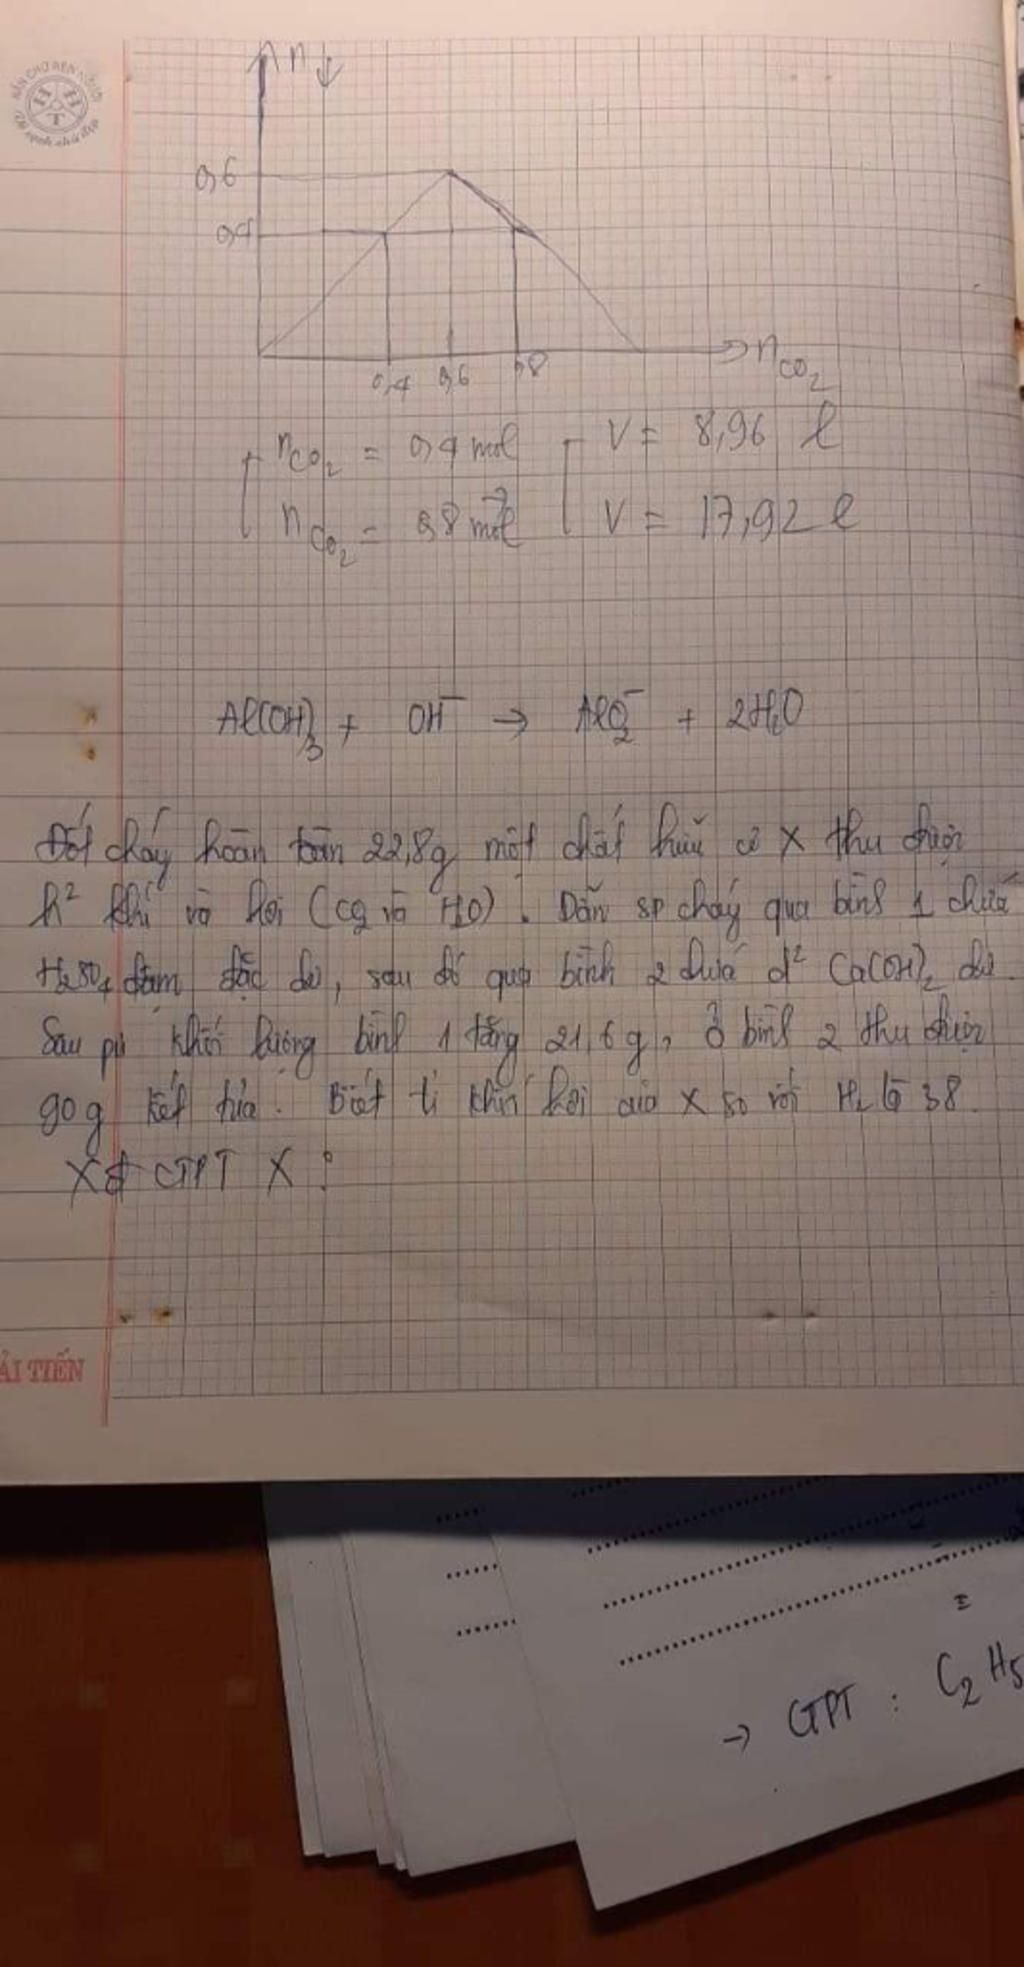 n ↓
0,6
0,4
0,4 0,6 0,8
nCO₂
nCO₂ = 0,4 mol V = 8,96 l
nCO₂ = 0,8 mol V = 17,92 l
Al(OH)₃ + OH⁻ → AlO₂⁻ + 2H₂O
Đốt cháy hoàn toàn 22,8g một chất hữu cơ X thu được
h² khí và hơi (CO₂ và H₂O). Dẫn sp cháy qua bình 1 chứa
H₂SO₄ đậm đặc dư, sau đó qua bình 2 chứa d² Ca(OH)₂ dư.
Sau pư khối lượng bình 1 tăng 21,6g, ở bình 2 thu được
90g kết tủa. Biết tỉ khối hơi của X so với H₂ là 38.
Xđ CTPT X :
ẢI TIẾN
=
→ CTPT : C₂H₅